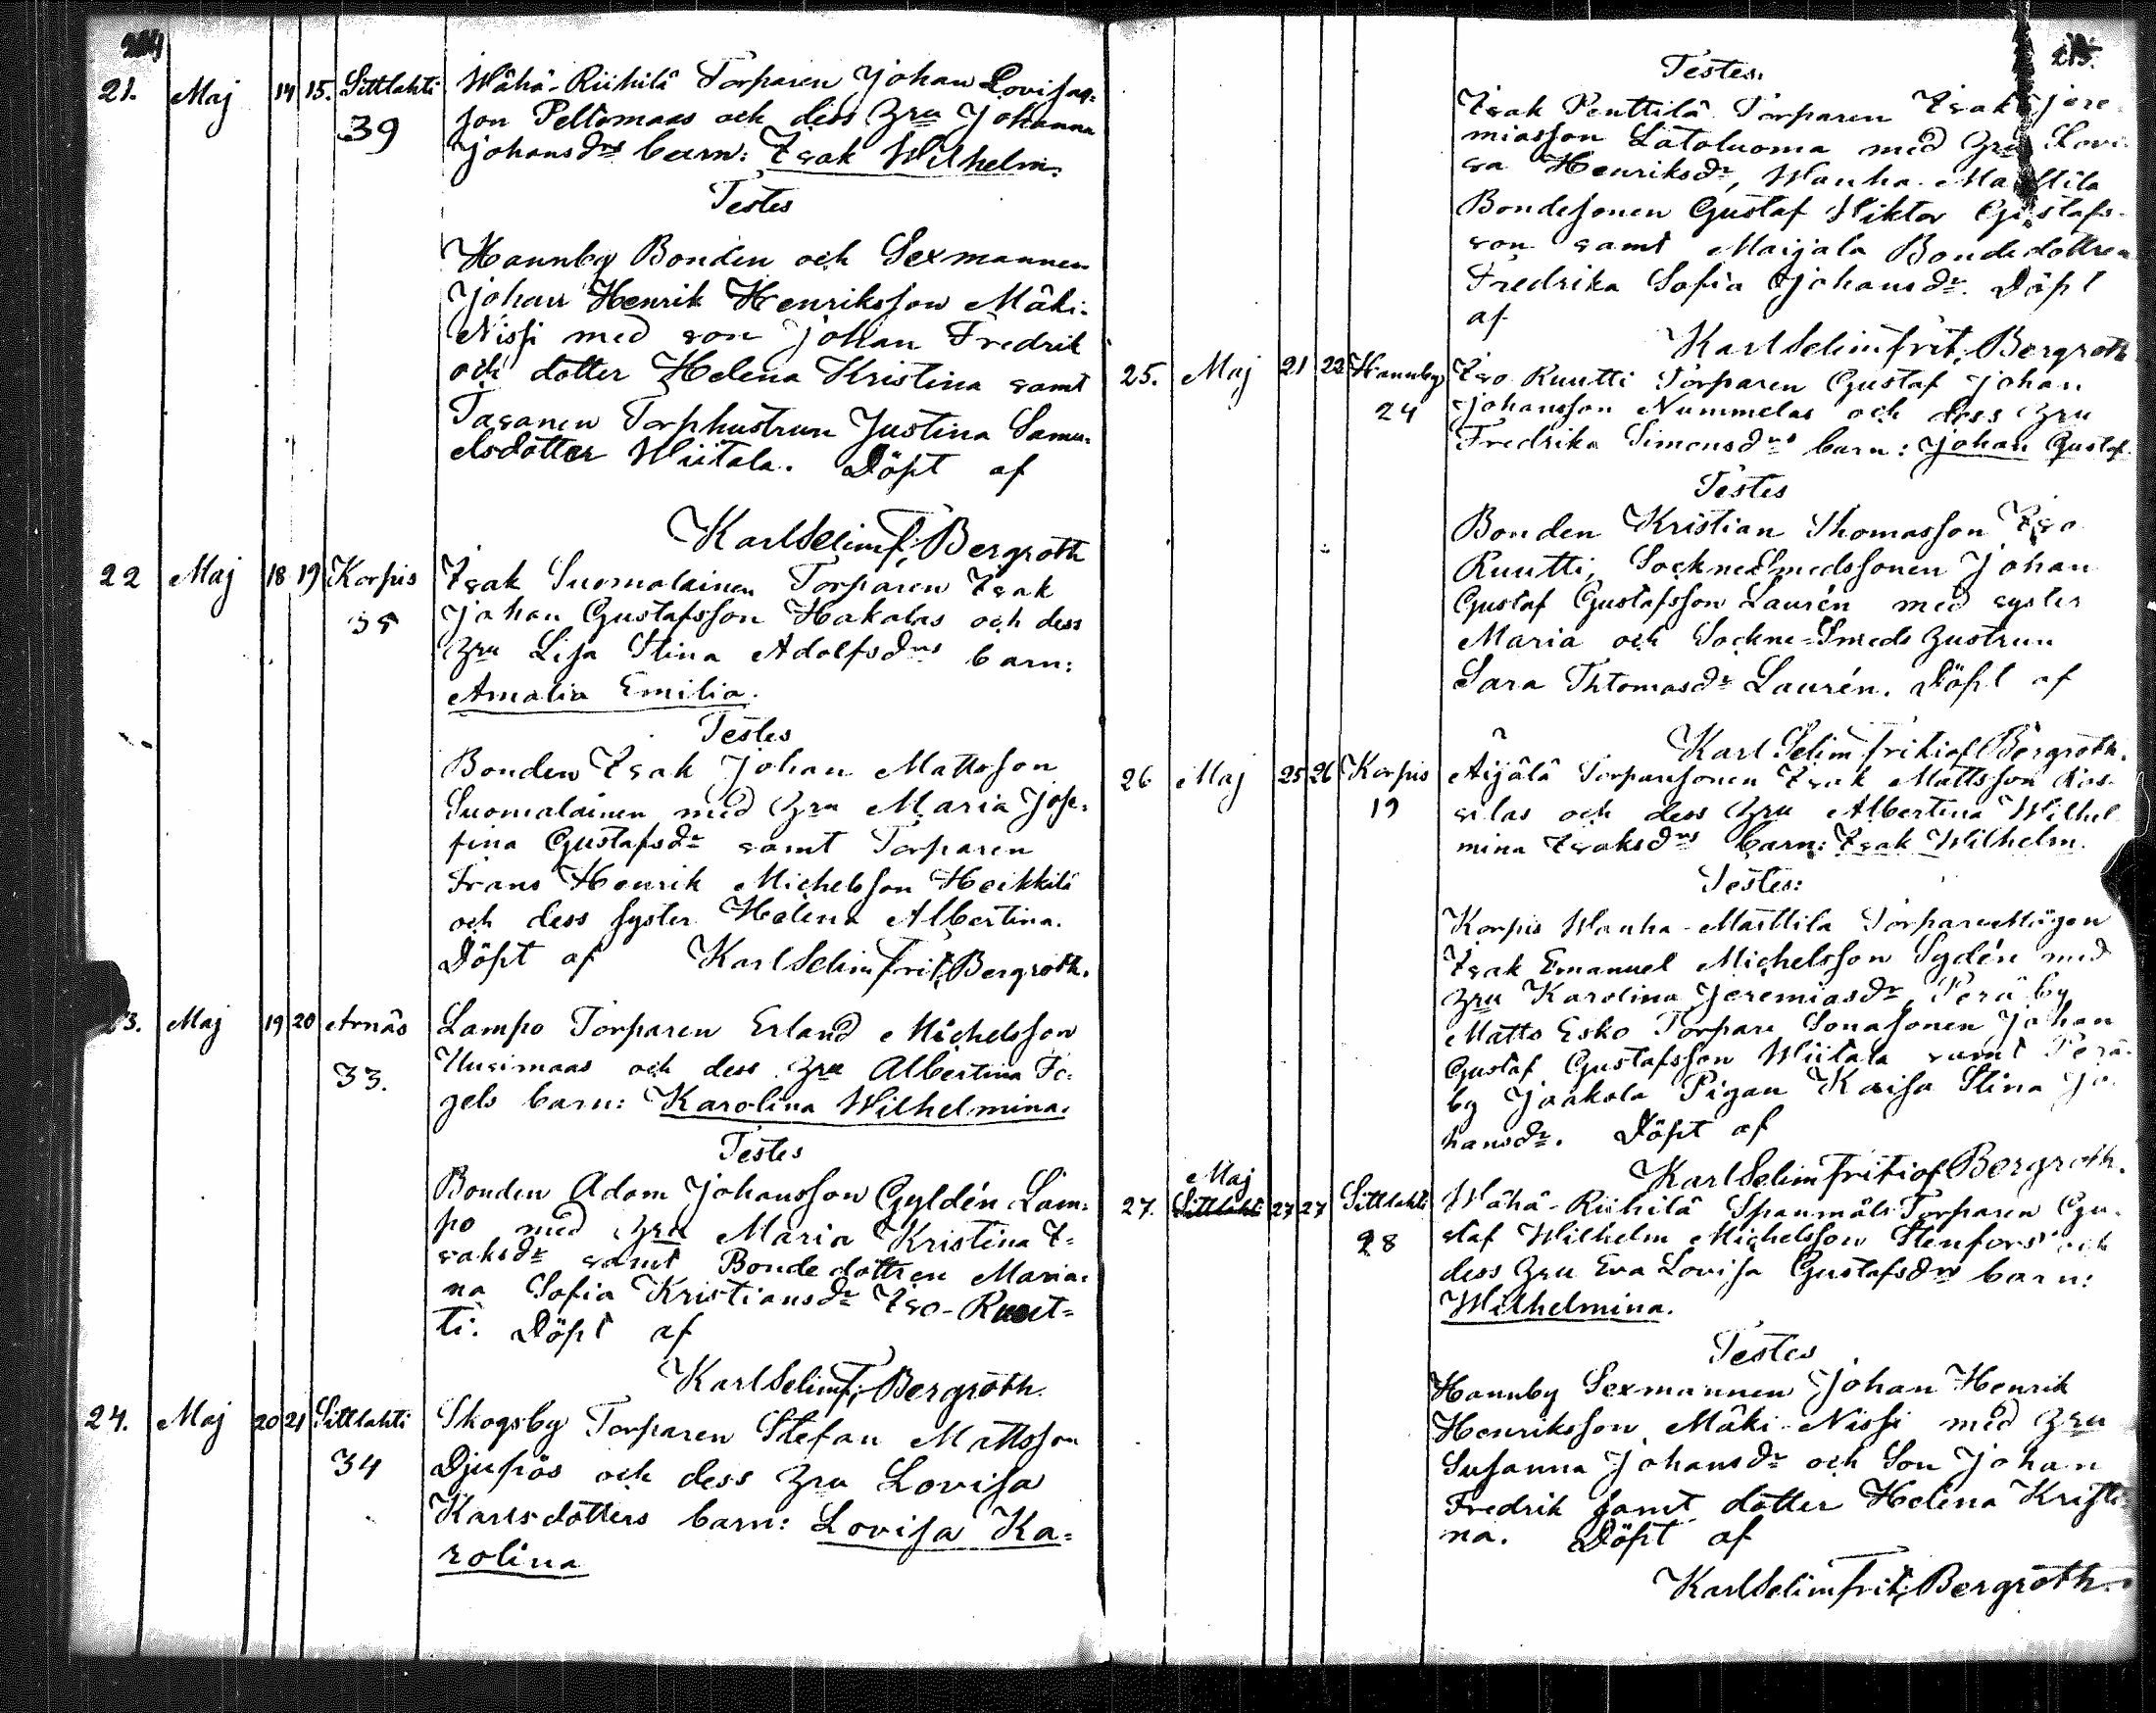 21. Maj 14 15. Sittlahti Wähä-Riihilä Torparen Johan Lovisas-
39 son Peltomaas och dess Hru Johanna
Johansdrs barn: Isak Wilhelm.
Testes
Hannby Bonden och Sexmannen
Johan Henrik Henriksson Mäki-
Nissi med son Johan Fredrik
och dotter Helena Kristina samt
Tasanen Torphustrun Justina Samu-
elsdotter Wiitala. Döpt af
Karl Selim F. Bergroth
22 Maj 18 19 Korpis Isak Suomalainen Torparen Isak
35 Johan Gustafsson Hakalas och dess
Hru Lisa Stina Adolfsdrs barn:
Amalia Emilia.
Testes
Bonden Isak Johan Mattsson
Suomalainen med Hru Maria Jose-
fina Gustafsdr samt Torparen
Frans Henrik Michelsson Heikkilä
och dess syster Helena Albertina.
Döpt af Karl Selim Frit. Bergroth.
3. Maj 19 20 Arnäs Lampo Torparen Erland Michelsson
33. Uusimaas och dess Hru Albertina Fo-
gels barn: Karolina Wilhelmina.
Testes
Bonden Adam Johansson Gyldén Lam-
po med Hru Maria Kristina I-
saksdr samt Bondedottren Maria-
na Sofia Kristiansdr Iso-Ruut-
ti. Döpt af
Karl Selim F. Bergroth.
24. Maj 20 21 Sittlahti Skogsby Torparen Stefan Mattsson
34 Djupös och dess Hru Lovisa
Karlsdotters barn: Lovisa Ka-
rolina
215.
Testes.
Isak Penttilä Torparen Isak Jere-
miasson Latoluoma med Hru Lovi-
sa Henriksdr, Wanha Mattila
Bondesonen Gustaf Wiktor Gustafs-
son samt Maijala Bondedottren
Fredrika Sofia Johansdr. Döpt
af
Karl Selim Frit. Bergroth
25. Maj 21 22 Hannby Iso Ruutti Torparen Gustaf Johan
24 Johansson Nummelas och dess Hru
Fredrika Simonsdrs barn: Johan Gustaf.
Testes
Bonden Kristian Thomasson Iso
Ruutti, Sockne Smedssonen Johan
Gustaf Gustafsson Laurén med syster
Maria och Sockne-Smeds Hustrun
Sara Thtomasdr Laurén. Döpt af
Karl Selim Fritiof Bergroth.
26 Maj 25 26 Korpis Äijälä Torparesonen Isak Mattsson
19 silas och dess Hru Albertina Wilhel
mina Isaksdrs barn: Isak Wilhelm.
Testes:
Korpis Wanha-Mattila Torparemågen
Isak Emanuel Michelsson Sydén med
Hru Karolina Jeremiasdr, Perä by
Matts Esko Torpare Sonasonen Johan
Gustaf Gustafsson Wiitala samt Perä-
by Jaakola Pigan Kaisa Stina Jo-
hansdr. Döpt af
Karl Selim Fritiof Bergroth.
Maj
27. Sittlahti 27 27 Sittlahti Wähä-Riihilä Spanmåls Torparen Gu-
28 staf Wilhelm Michelsson Stenfors och
dess Hru Eva Lovisa Gustafsdrs barn:
Wilhelmina.
Testes
Hannby Sexmannen Johan Henrik
Henriksson Mäki-Nissi med Hru
Susanna Johansdr och Son Johan
Fredrik samt dotter Helena Kristi
na. Döpt af
Karl Selim Frit. Bergroth.